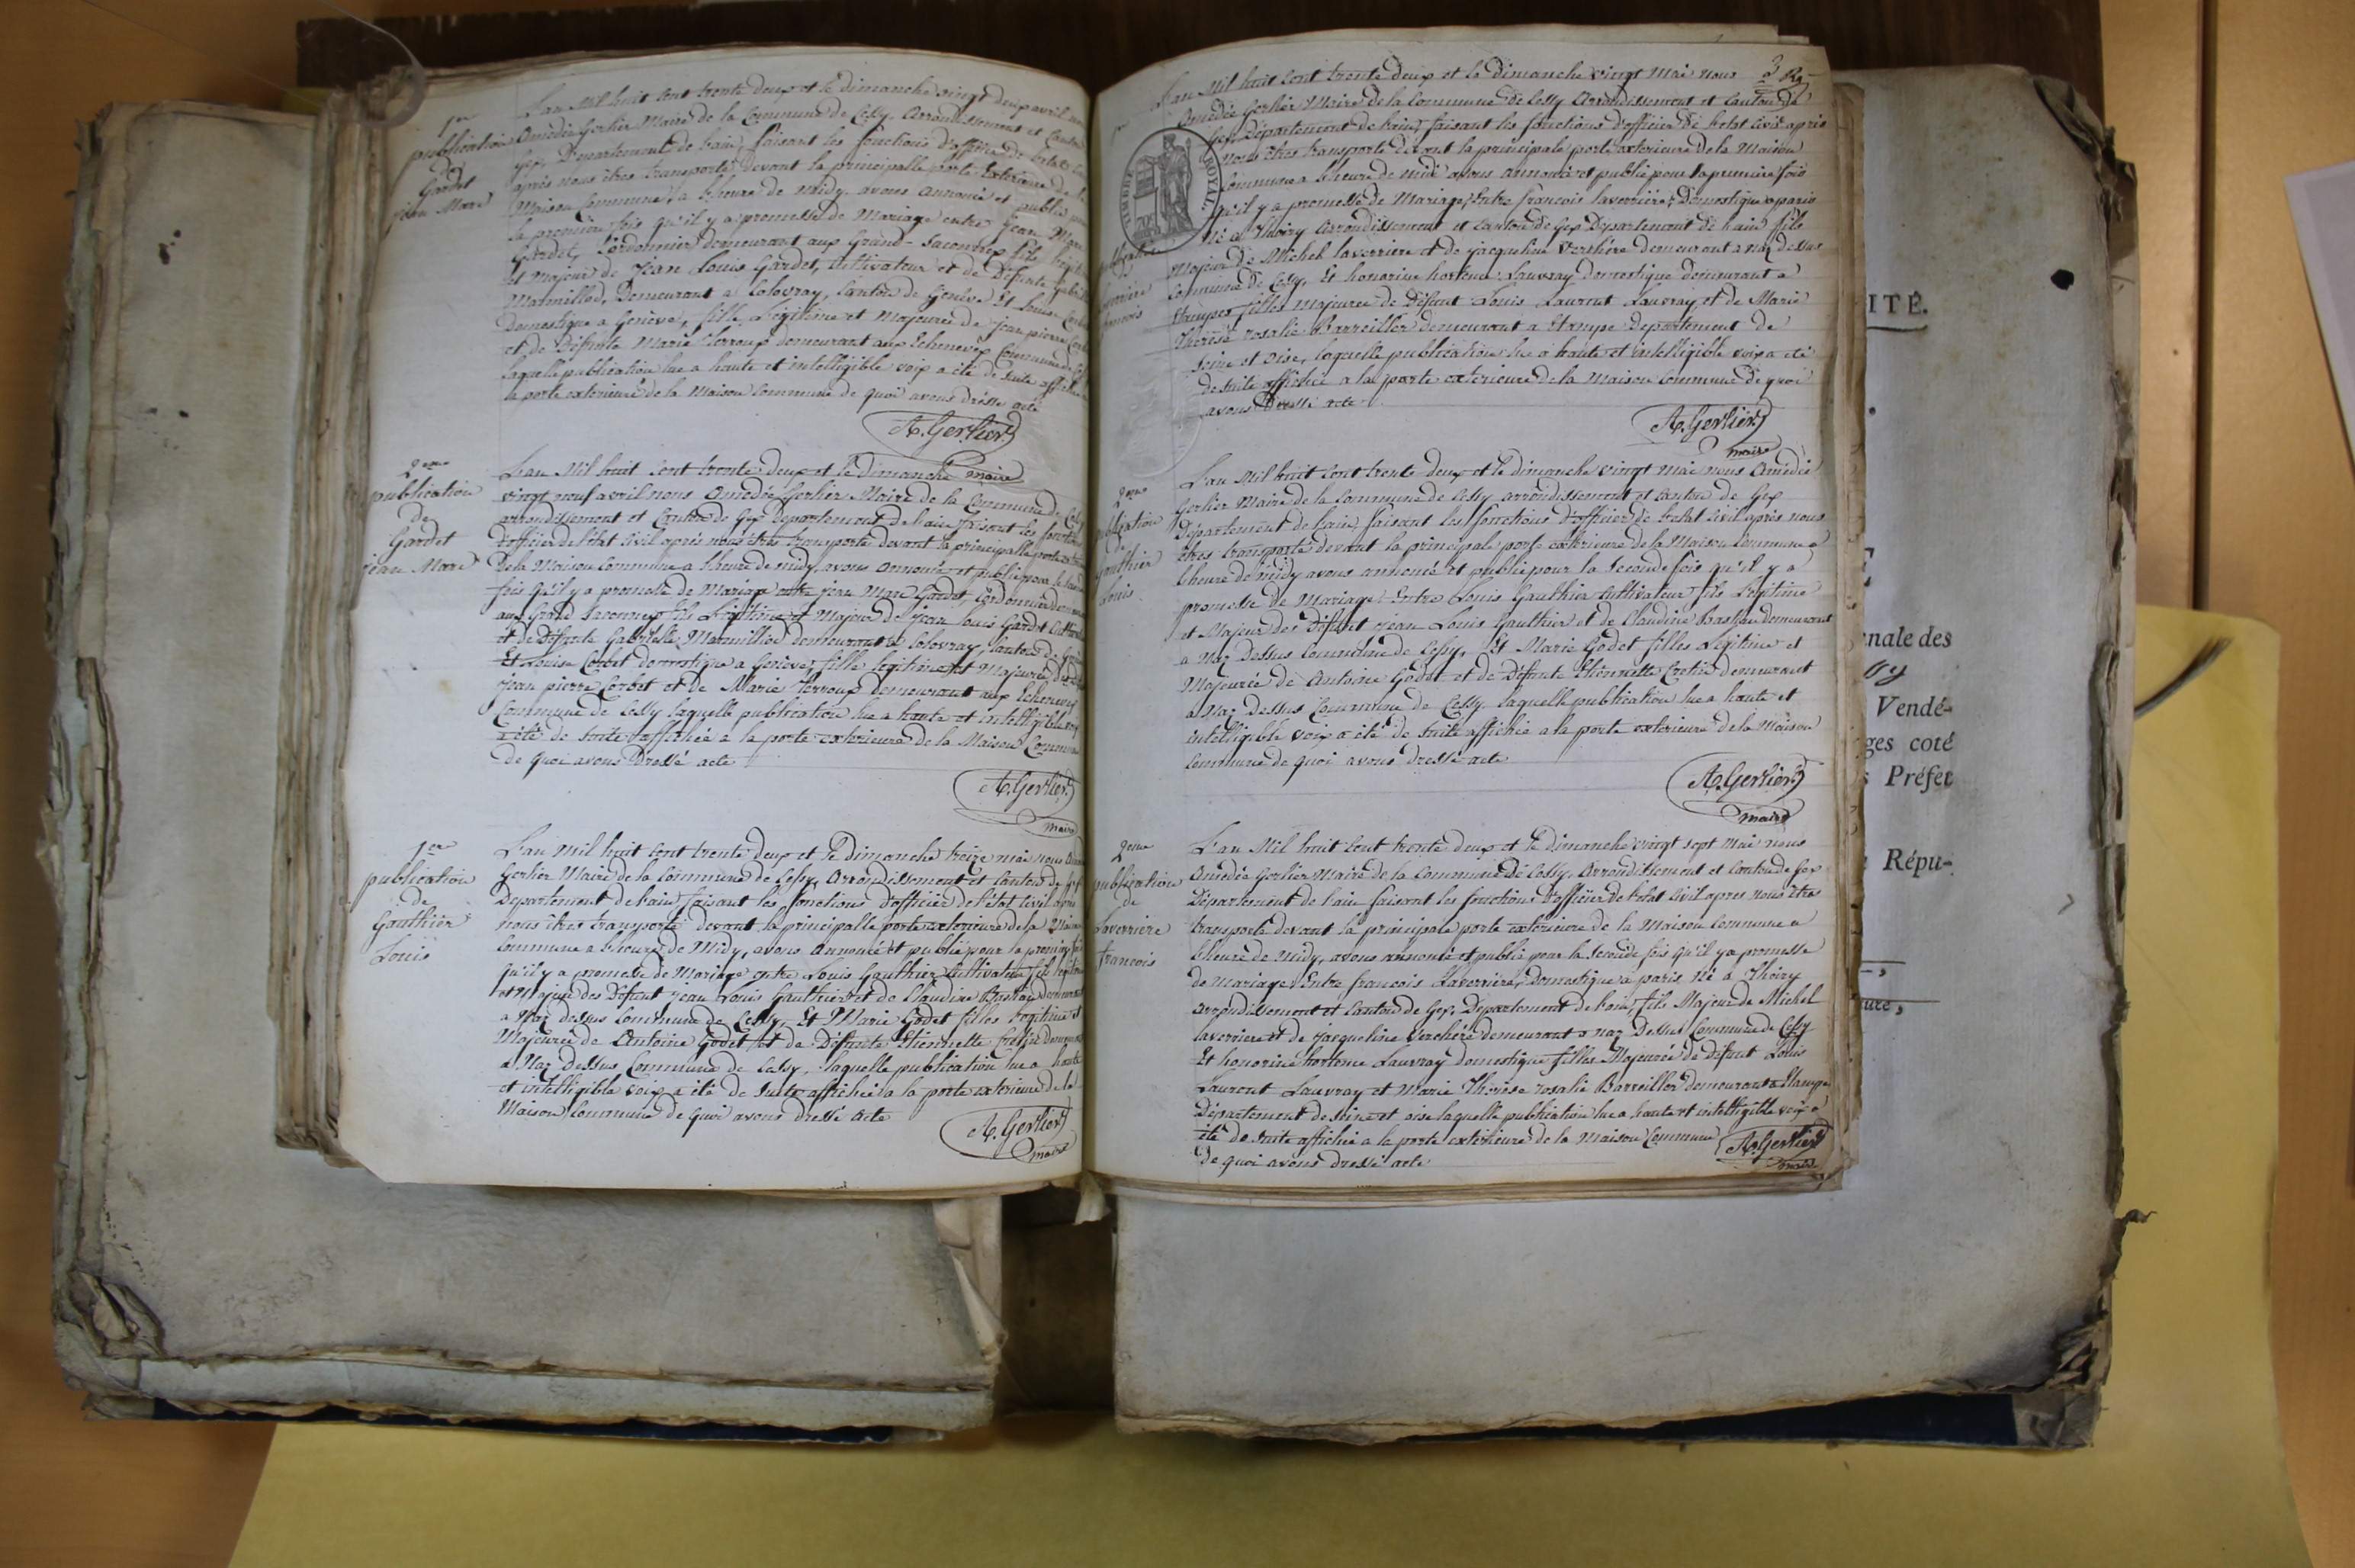 1re
publication
de
Gardet
jean Marc
L'an Mil huit Cent trente deux et le dimanche vingt deux avril nous
Amédée Gerlier Maire de la Commune de Cessy, Arrondissement et Canton
Gex, Département de L'ain, faisant les fonctions d'officier de l'etat
après nous êtres transporté devant la principalle porte Exterieure de la
Maison Commune, a l'heure de midy avons annoncé et publié pour
la première fois qu'il y a promesse de Mariage entre Jean Marc
Gardet, Cordonnier demeurant aux Grand-Saconnex fils
Et majeur de Jean Louis Gardet, Cultivateur et de Défunte
Marmillod, Demeurant a Colovray, Canton de Genève Et Louise
domestique a Genève, fille Légitime et Majeurée de jean pierre
et de Défunte Marie Perroux demeurant aux Echenevex Commune de
laquelle publication lue a haute et intelligible voix a été de suite
la porte exterieure de la Maison Commune de quoi avons dréssé acte
A. Gerlier
maire
2eme
publication
de
Gardet
jean Marc
L'an Mil huit Cent trente deux et le dimanche
vingt neuf avril nous Amédée Gerlier Maire de la Commune de
arrondissement et Canton de Gex Département de l'ain faisant les
d'officier de l'état Civil après nous êtres transporté devant la principalle porte
De la Maison Commune a l'heure de midy avons annoncé et publié pour la
fois qu'il y a promesse de Mariage entre jean Marc Gardet, Cordonnier
aux Grand Saconnex fils Légitime et Majeur de jean louis Gardet
et de Défunte Gabrielle Marmillod demeurant a Colovray, Canton de
Et Louise Corbet domestique a Genève, fille legitime et Majeurée de
jean pierre Corbet et de Marie Perroux demeurant aux Echenevex
Commune de Cessy laquelle publication lue a haute et intelligible voix
a été de suite affichée a la porte exterieure de la Maison Commune
de quoi avons Dressé acte
A. Gerlier
maire
1ere
publication
de
Gauthier
Louis
L'an Mil huit Cent trente deux et le Dimanche treize mai nous
Gerlier Maire de la Commune de Cessy, Arrondissement et Canton de Gex
Département de l'ain, faisant les fonctions d'officier de l'état Civil après
nous êtres transporté devant la principalle porte exterieure de la Maison
Commune a l'heure de Midy, avons Annoncé et publié pour la première
qu'il y a promesse de Mariage entre Louis Gauthier Cultivateur fils
et Majeur des Défunt jean Louis Gauthier et de Claudine Bastian demeurant
a Naz dessus Commune de Cessy, Et Marie Godet filles Légitime et
Majeurée de Antoine Godet et de Défunte Etiennette
a Naz Dessus Commune de Cessy, laquelle publication lue a haute
et intelligible voix a été de suite affichée a la porte exterieure de la
Maison Commune de quoi avons dressé acte
A. Gerlier
maire
3
L'an Mil huit Cent trente deux et le Dimanche vingt Mai nous
Amédée Gerlier Maire de la Commune de Cessy Arrondissement et Canton de
Gex Département de L'ain, faisant les fonctions d'officier de l'etat Civil après
nous êtres transporté devant la principale porte exterieure de la Maison
Commune a l'heure de midi avons annoncé et publié pour la première fois
qu'il y a promesse de Mariage, Entre françois laverriere, Domestique a paris
Né a Thoiry Arrondissement et Canton de Gex Département de l'ain fils
Majeur de Michel laverriere et de jacqueline Verchère demeurant a naz dessus
Commune de Cessy, Et honorine hortence Lauvray domestique demeurant a
Etampes filles Majeurée de Défunt Louis Laurent Lauvray et de Marie
Thérèse rosalie Barreiller demeurant a Etampe Département de
Seine et oise, laquelle publication lue a haute et intelligible voix a été
de suite affichée a la porte exterieure de la Maison Commune de quoi
avons Dressé acte
TIMBRE ROYAL.
laverriere
françois
A. Gerlier
maire
2eme
publication
de
Gauthier
Louis
L'an Mil huit Cent trente deux et le dimanche vingt Mai nous Amédée
Gerlier Maire de la Commune de Cessy arrondissement et Canton de Gex
Département de l'ain, faisant les fonctions d'officier de l'etat Civil après nous
êtres transporté devant la principale porte exterieure de la Maison Commune a
l'heure de midy avons annoncé et publié pour la Seconde fois qu'il y a
promesse de Mariage Entre Louis Gauthier Cultivateur fils Légitime
et Majeur des Défunt Jean Louis Gauthier et de Claudine Bastian demeurant
a Naz Dessus Commune de Cessy, Et Marie Godet filles Légitime et
Majeurée de Antoine Godet et de Défunte Etiennette demeurant
a Naz Dessus Commune de Cessy, laquelle publication lue a haute et
intelligible voix a été de suite affichée a la porte exterieure de la Maison
Commune de quoi avons dressé acte
A. Gerlier
maire
2eme
publication
de
Laverriere
francois
L'an Mil huit Cent trente deux et le dimanche vingt sept Mai nous
Amédée Gerlier Maire de la Commune de Cessy, Arrondissement et Canton de Gex
Département de l'ain faisant les fonctions d'officier de l'etat Civil apres nous êtres
transporté devant la principale porte exterieure de la Maison Commune a
l'heure de Midy, avons annoncé et publié pour la Seconde fois qu'il y a promesse
de mariage Entre francois Laverriere, domestique a paris Né a Thoiry
arrondissement et Canton de Gex, Département de l'ain, fils Majeur de Michel
laverriere et de jacqueline Verchère demeurant a naz Dessus Commune de Cessy
Et honorine hortence Lauvray domestique filles Majeurée de défunt Louis
Laurent Lauvray et Marie Thérèse rosalie Barreiller demeurant a Etampe
Département de Seine et oise laquelle publication lue a haute et intelligible voix a
été de suite affichée a la porte exterieure de la Maison Commune
de quoi avons dressé acte
A. Gerlier
maire
ITÉ.
nale des
Vendé-
ges coté
Préfet
Répu-